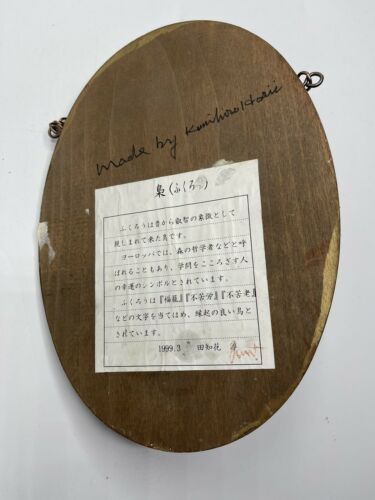 made by Kunihiro Horii
梟(ふくろう)
ふくろうは昔から叡智の象徴として
親しまれて来た鳥です。
ヨーロッパでは、森の哲学者などと呼
ばれることもあり、学問をこころざす人
の幸運のシンボルとされています。
ふくろうは『福籠』『不苦労』『不苦老』
などの文字を当てはめ、縁起の良い鳥と
されています。
1999.3 田知花